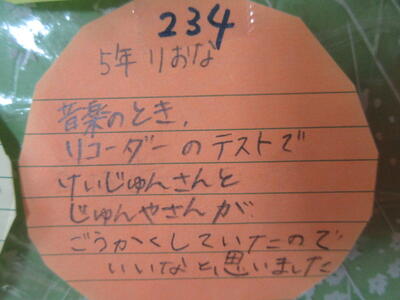 234
5年 りおな
音楽のとき、
リコーダーのテストで
けいじゅんさんと
じゅんやさんが
ごうかくしていたので
いいなと思いました